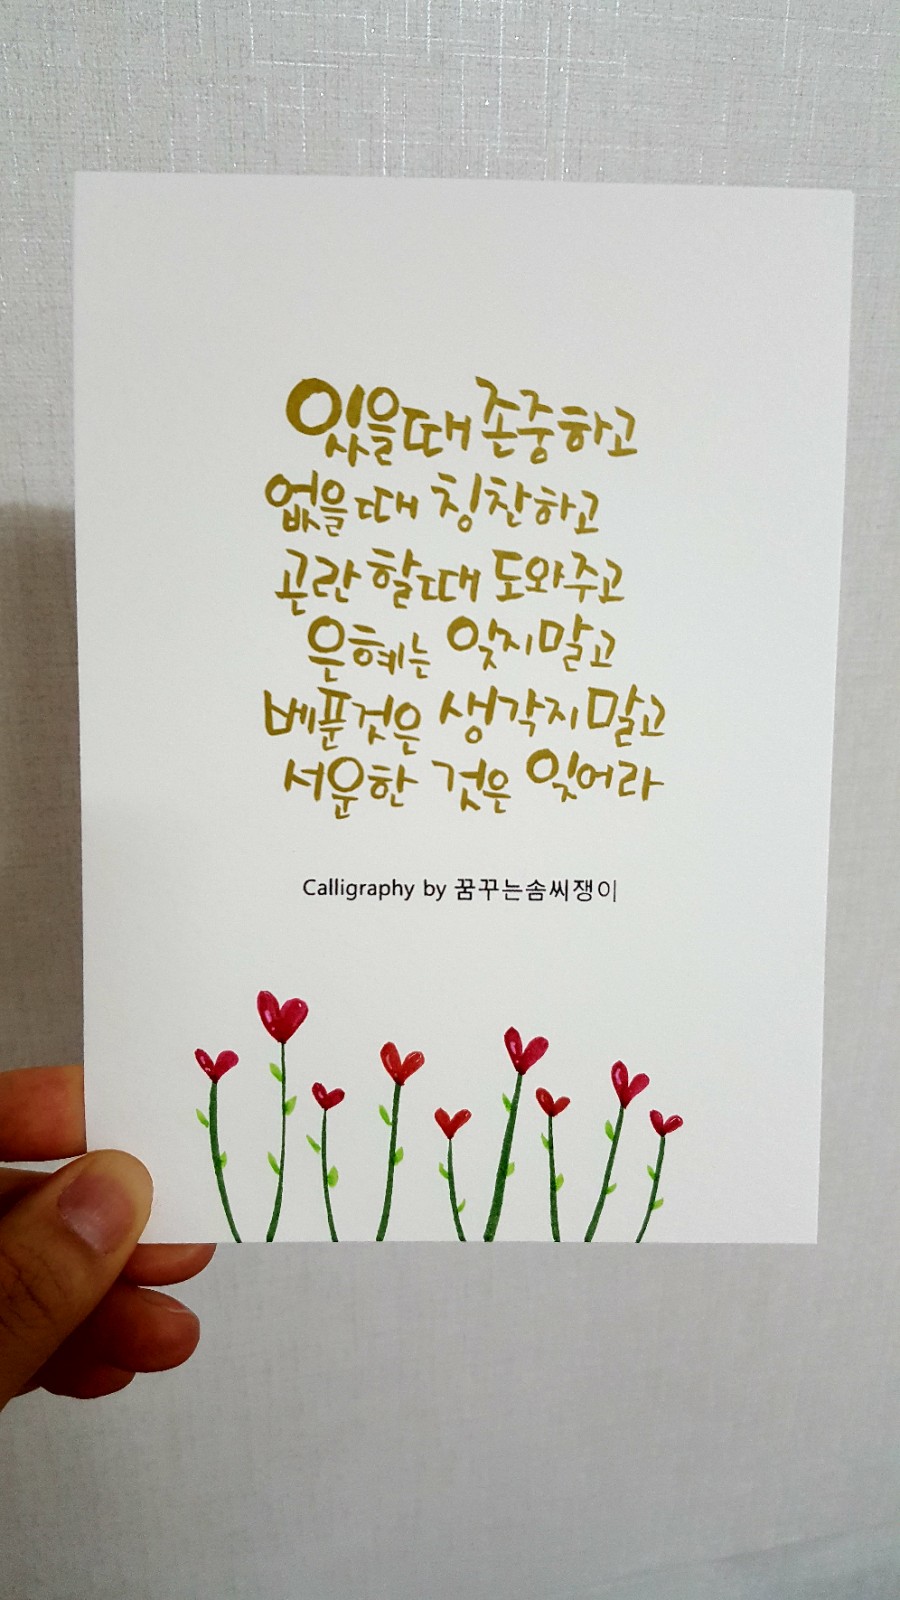 있을때 존중하고
없을때 칭찬하고
곤란 할때 도와주고
은혜는 잊지말고
베푼것은 생각지말고
서운한 것은 잊어라
Calligraphy by 꿈꾸는솜씨쟁이